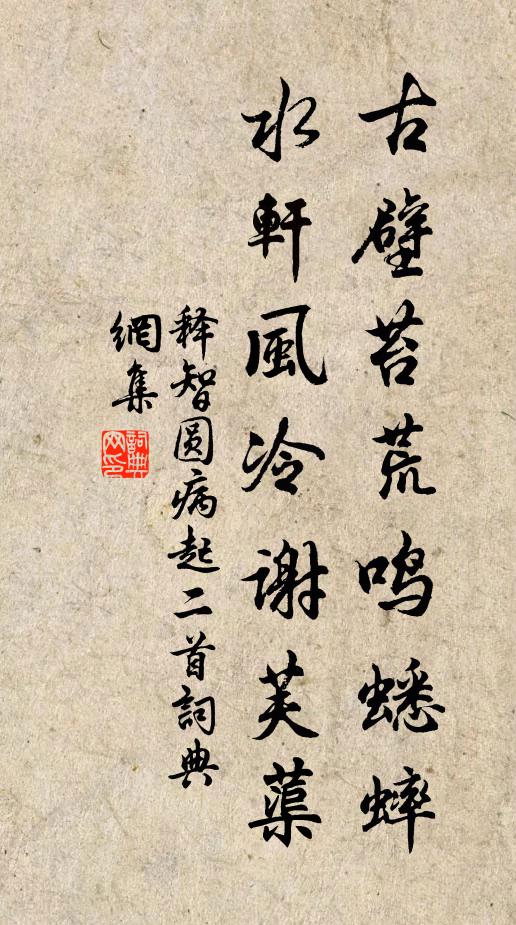 古壁苔荒鸣蟋蟀
水軒風冷謝芙蕖
释智圆病起二首詞典
網集
詞典
网印